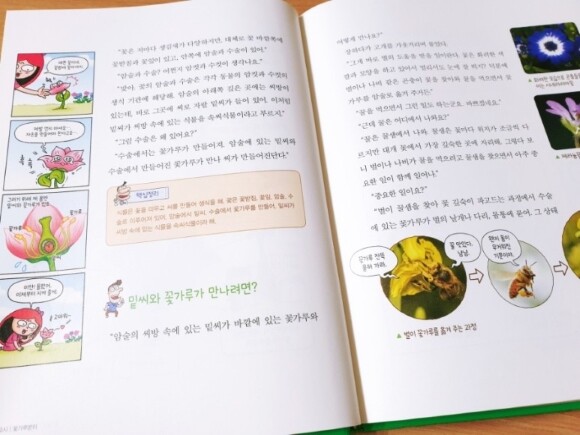 "꽃은 저마다 생김새가 다양하지만, 대체로 꽃 바깥쪽에
꽃받침과 꽃잎이 있고, 안쪽에 암술과 수술이 있어."
"암술과 수술? 어쩐지 암컷과 수컷이 생각나요."
"맞아. 꽃의 암술과 수술은 각각 동물의 암컷과 수컷의
생식 기관에 해당해. 암술의 아래쪽 깊은 곳에는 씨방이
있는데, 바로 그곳에 씨로 자랄 밑씨가 들어 있어. 이처럼
밑씨가 씨방 속에 있는 식물을 속씨식물이라고 부르지."
"그럼 수술은 왜 있어요?"
"수술에서는 꽃가루가 만들어져. 암술에 있는 밑씨와
수술에서 만들어진 꽃가루가 만나 씨가 만들어진단다."
핵심정리
식물은 꽃을 피우고 씨를 만들어 생식을 해. 꽃은 꽃받침, 꽃잎, 암술, 수
술로 이루어져 있어. 암술에서
씨방 속에 있는 식물을 속씨식물이라 해.
밑씨와 꽃가루가 만나려면?
"암술의 씨방 속에 있는 밑씨가 바깥에 있는 꽃가루와
꽃가루
어떻게 만나요?"
장하다가 고개를 갸웃거리며 물었다.
"그게 바로 벌의 도움을 받을 일이란다. 꽃은 화려한 색
벌이나 나비 같은 곤충이 꿀을 찾아와 꿀을 먹으면서 꽃
가루를 암술로 옮겨 주거든."
"꿀을 먹으면서 그런 일도 하는군요. 바쁘겠네요."
"근데 꿀은 어디에서 나와요?"
"꿀은 꿀샘에서 나와. 꿀샘은 꽃마다 위치가 조금씩 다
르지만 대개 꽃에서 가장 깊숙한 곳에 자리해. 그렇다 보
니 벌이나 나비가 꿀을 먹으려고 꿀샘을 찾으면서 아주 중
요한 일이 함께 일어나."
"중요한 일이요?"
"벌이 꿀샘을 찾아 꽃 깊숙이 파고드는 과정에서 수술
에 있는 꽃가루가 벌의 날개나 다리, 몸통에 묻어. 그 상태
꿀 맛있다.
냠냠.
왠지 몸이
무거워진
기분이야.
▲ 벌이 꽃가루를 옮겨 주는 과정